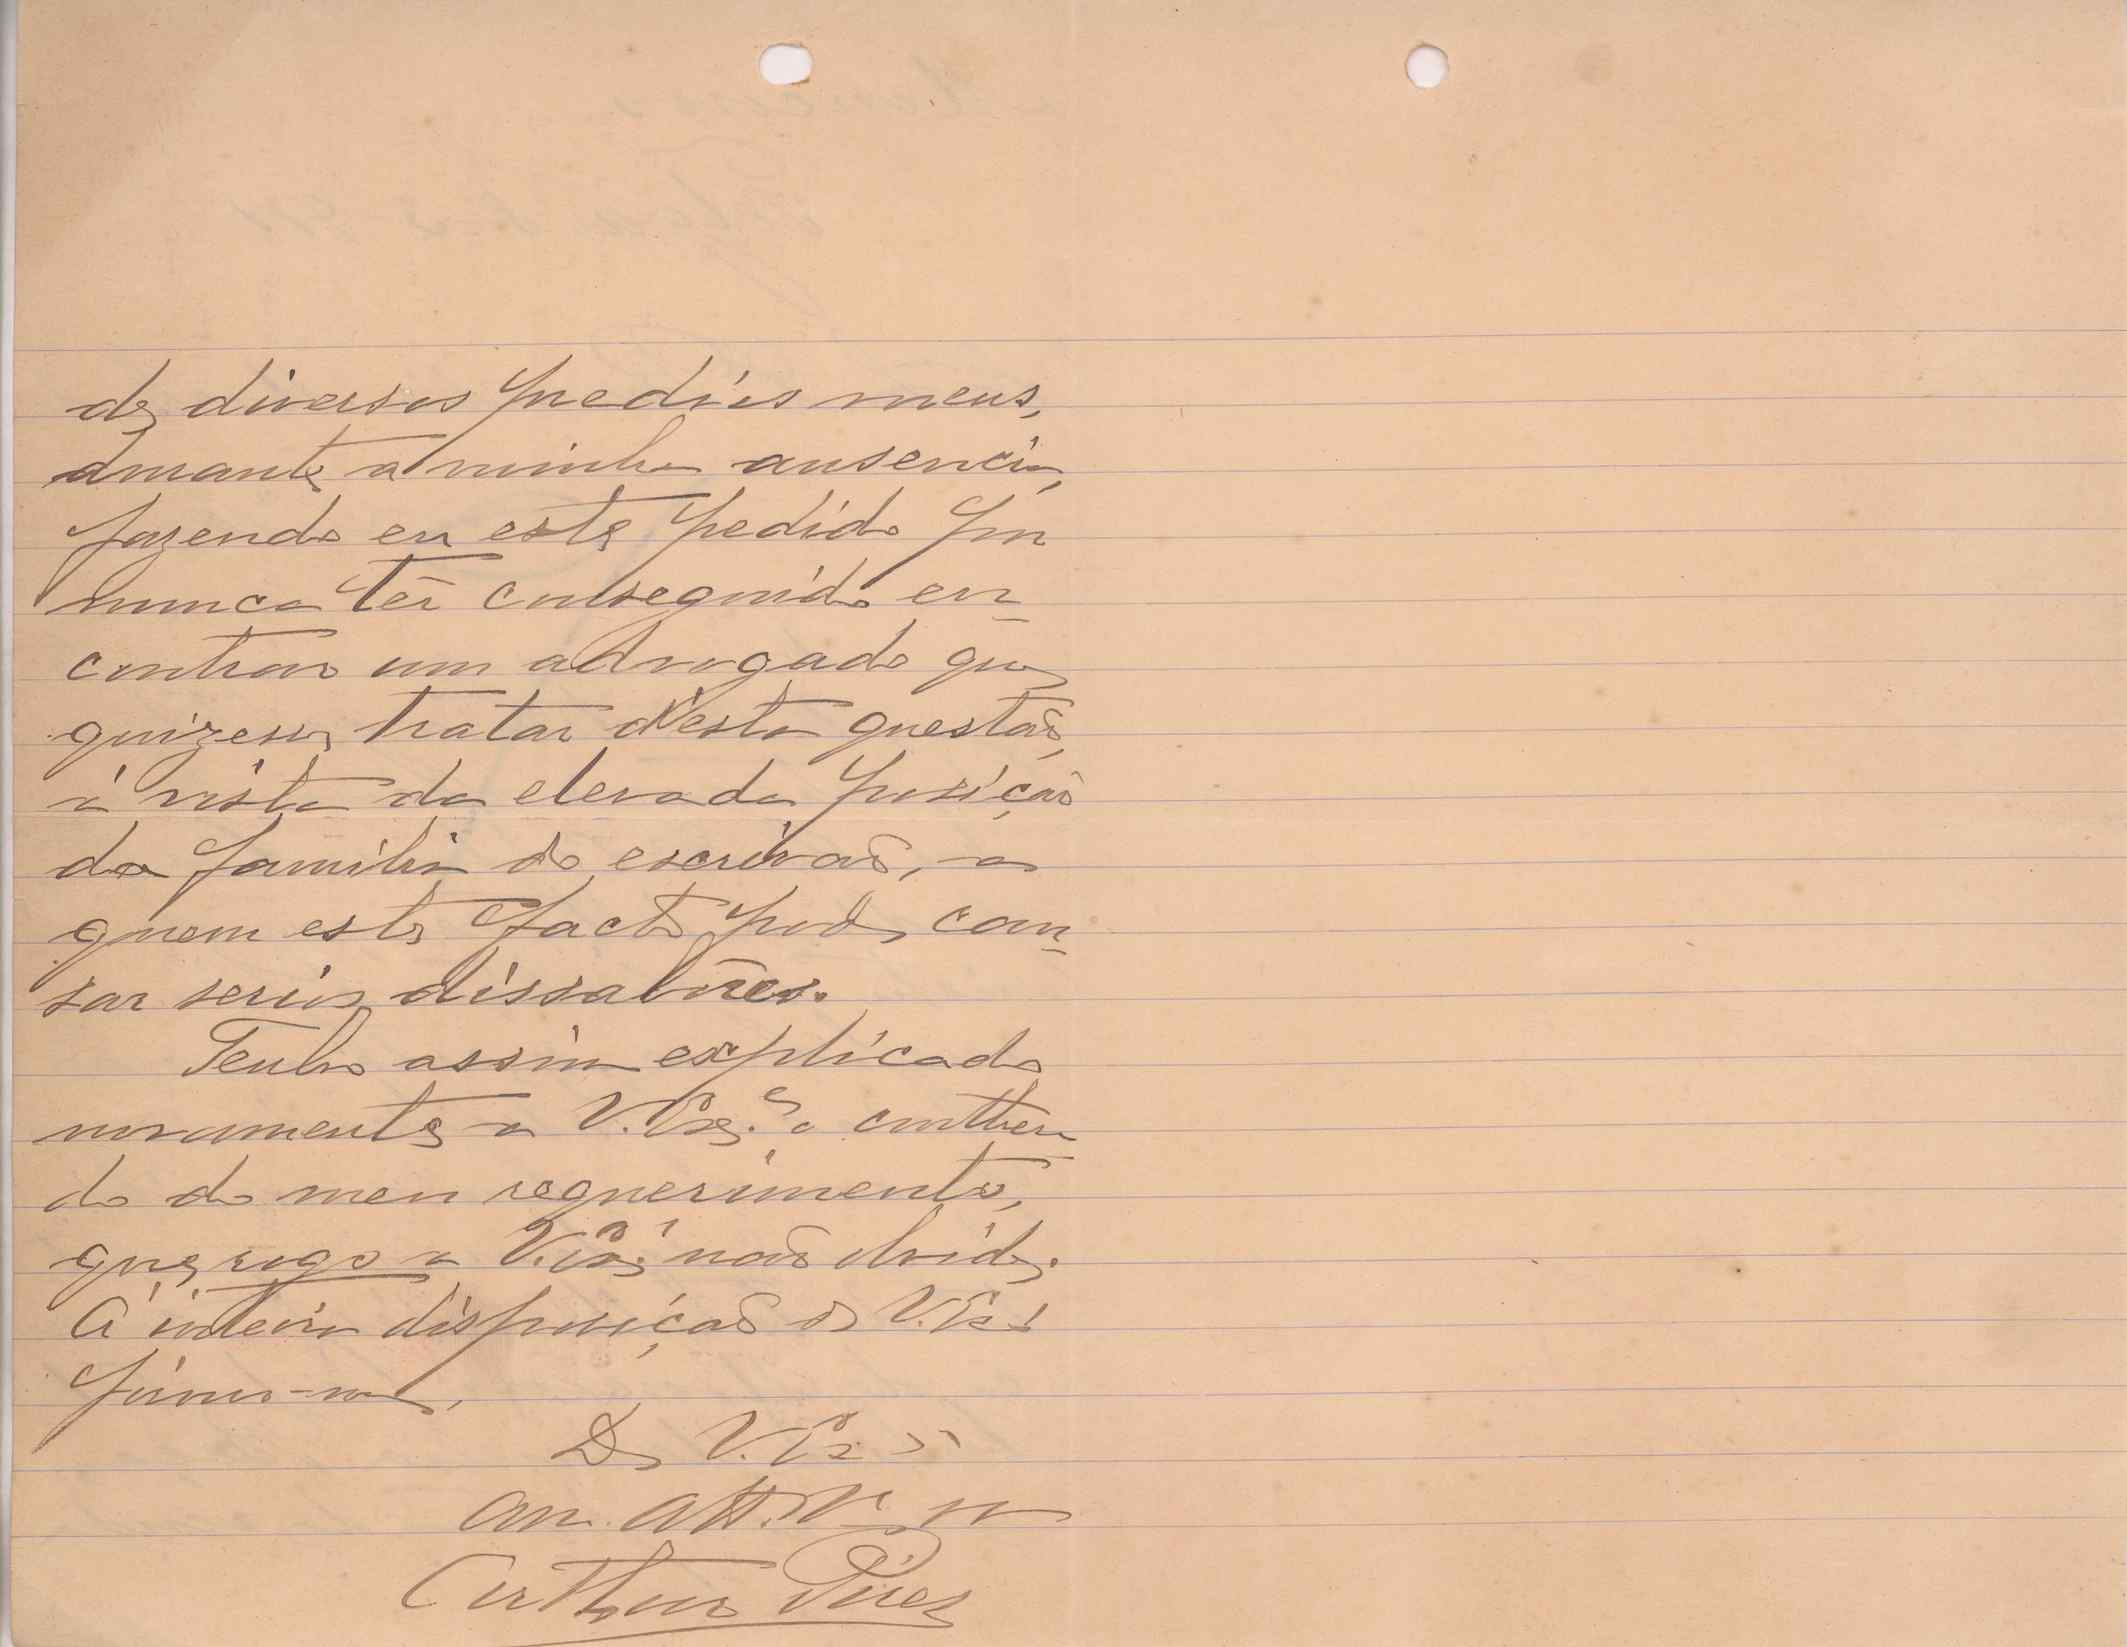 de diversos predios meus,
durante a minha ausencia,
fazendo eu este pedido por
nunca têr conseguido en-
contrar um advogado que
quizesse tratar d'esta questaõ,
á vista da elevada posiçaõ
da familia do escrivaõ, a
quem este facto pode cau-
sar serios dissabôres.
Tenho assim explicado
novamente a V. Ex.ª o contheu-
do do meu requerimento,
que rogo a V. Ex.ª naõ olvide.
Á inteira disposiçaõ de V. Ex.ª
firmo-me,
De V. Ex.ª
am. att. V.
Arthur Pires